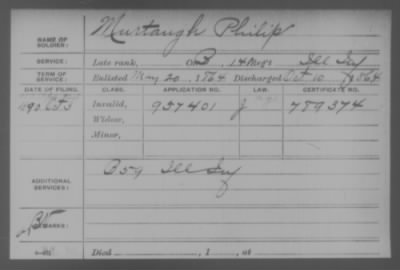 NAME OF SOLDIER: Murtaugh Philip
SERVICE: Late rank, Co. B, 14 Reg't Ill Inf
TERM OF SERVICE: Enlisted May 20, 1864 Discharged Oct 10, 1864
DATE OF FILING. CLASS. APPLICATION NO. LAW. CERTIFICATE NO.
1890 Oct 3 Invalid, 937401 J 789374
Widow,
Minor,
ADDITIONAL SERVICES: B 59 Ill Inf
REMARKS:
Died , 1 , at